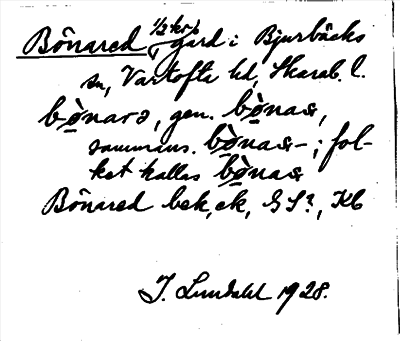 Bönared, 1/2 kr, gård i Bjurbäcks
sn, Vartofte hd, Skarab. l.
bø̀narə, gen. bø̀nas,
sammans. bø̀nas-; fol-
ket kallas bø̀nas
Bönared bek, ek, GS?, Kb
J. Lundahl 1928.